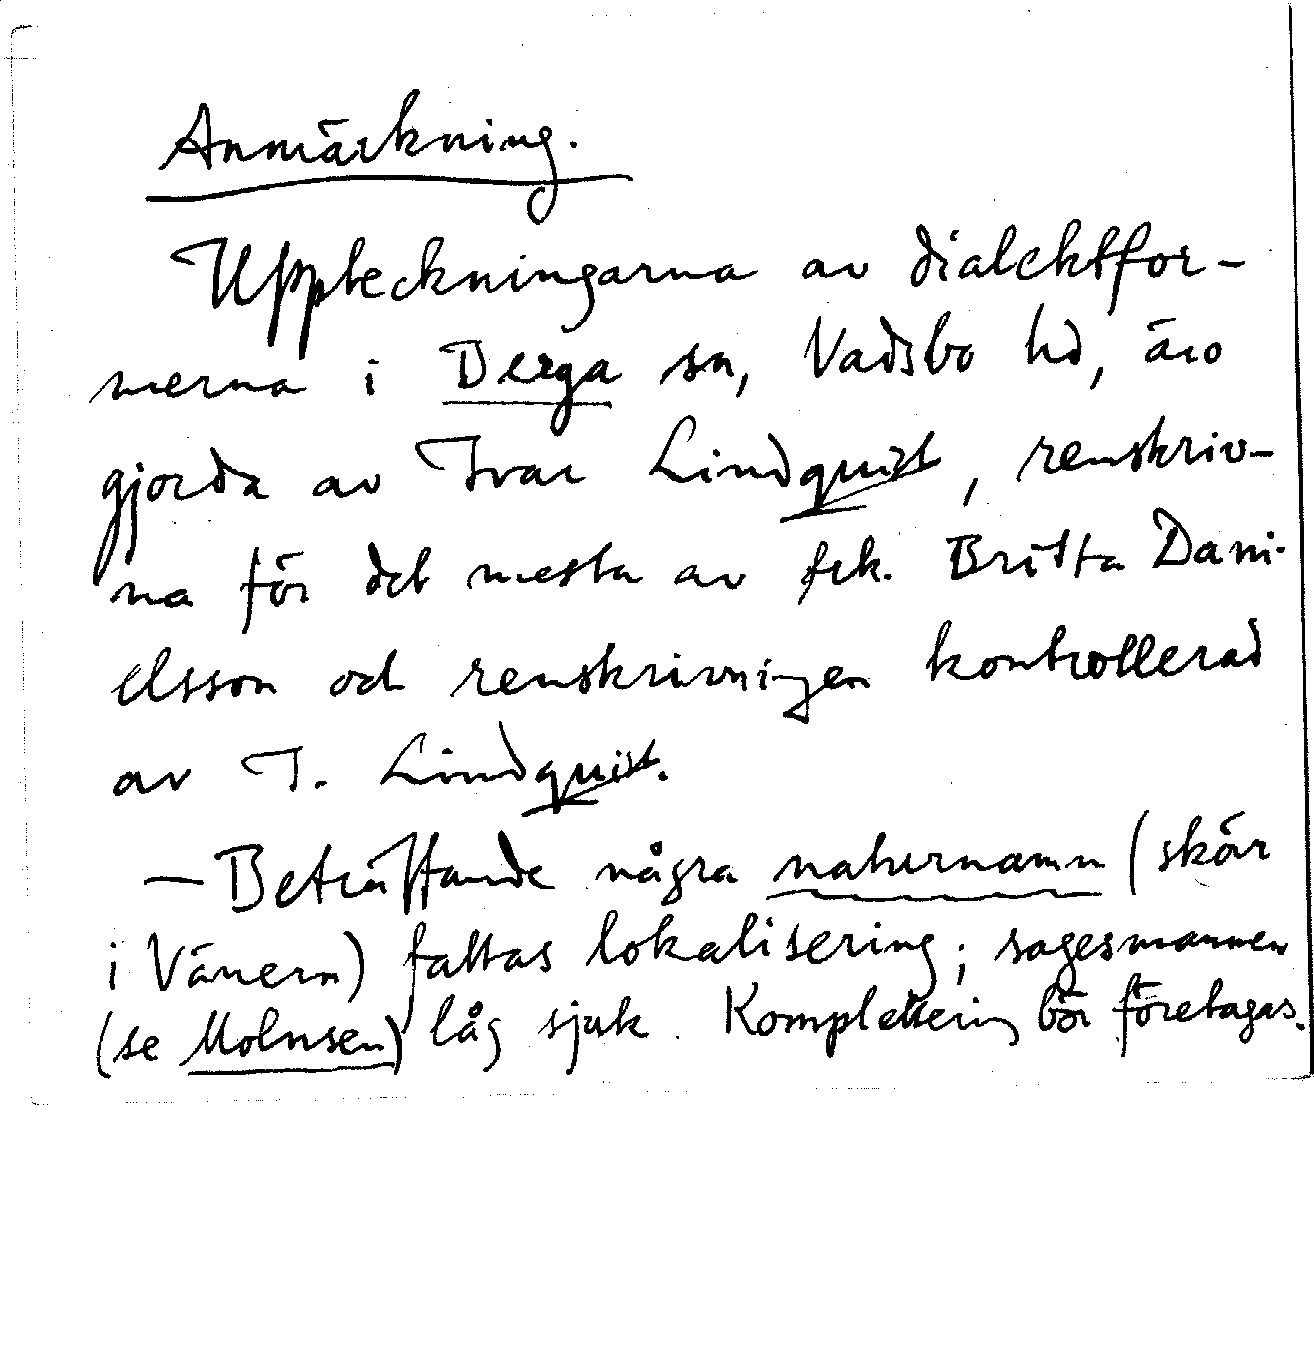 Anmärkning.
Uppteckningarna av dialektfor-
merna i Berga sn, Vadsbo hd, äro
gjorda av Ivar Lindquist, renskriv-
na för det mesta av frk. Britta Dani-
elsson och renskrivningen kontrollerad
av I. Lindquist.
— Beträffande några naturnamn (skär
i Vänern) fattas lokalisering; sagesmannen
(se Molnsen) låg sjuk. Komplettering bör företagas.